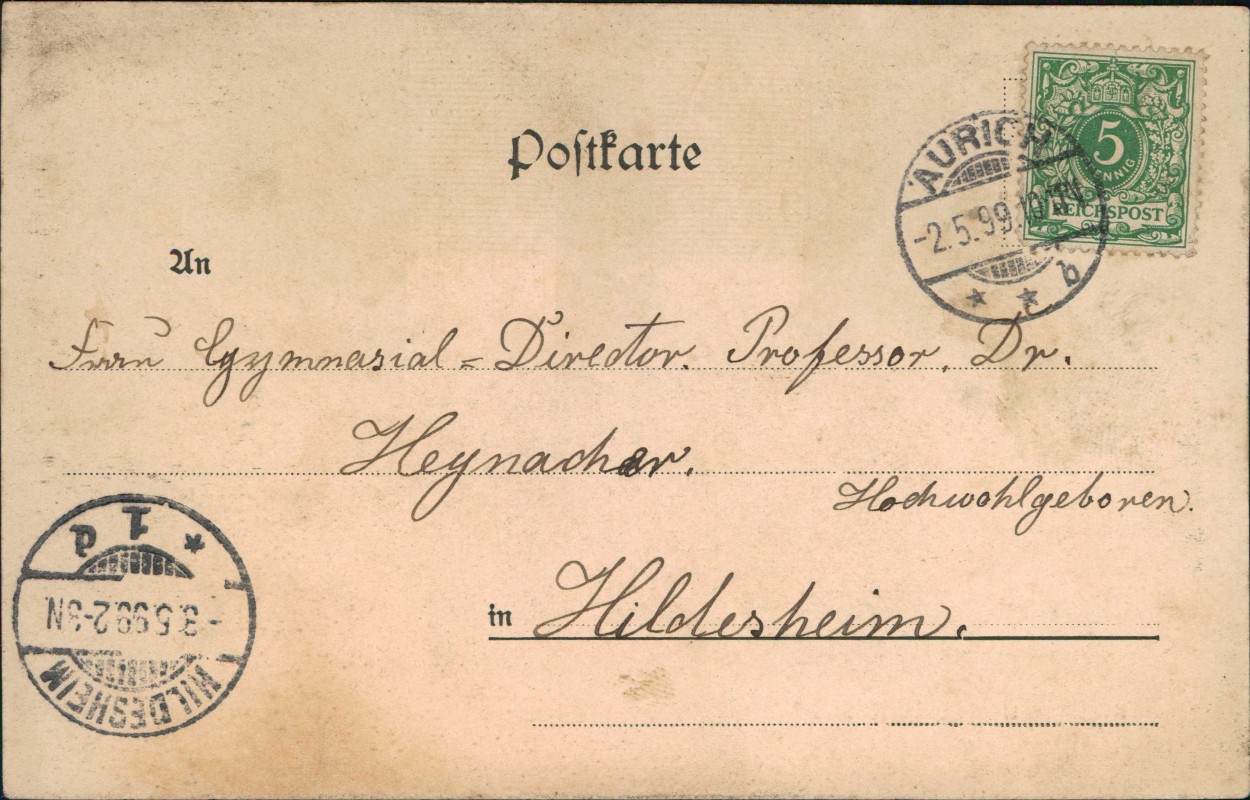 Postkarte
5
PFENNIG
REICHSPOST
AURICH
-2.5.99.10-11N
* * b
An
Frau Gymnasial-Director. Professor. Dr.
Heynacher.
Hochwohlgeboren.
in Hildesheim.
HILDESHEIM
-3.5.99.2-3N
* 1 d